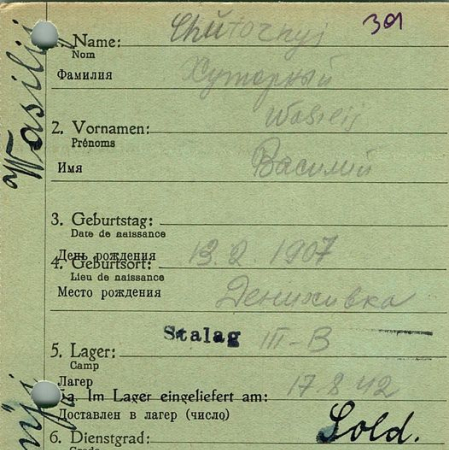 391
1. Name: Chutornyj
Nom
Фамилия Хуторный
Wasilij
2. Vornamen:
Prénoms
Имя Василий
3. Geburtstag:
Date de naissance
День рождения 13.2.1907
4. Geburtsort:
Lieu de naissance
Место рождения Денихивка
Stalag III-B
5. Lager:
Camp
Лагер 17 8 42
5a. Im Lager eingeliefert am:
Доставлен в лагер (число)
6. Dienstgrad: Sold.
Wasilij